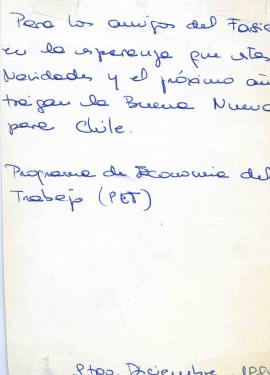 Para los amigos del Fasic
en la esperanza que estas
Navidades y el próximo añ
traigan la Buena Nueva
para Chile.
Programa de Economia del
Trabajo (PET)
Stgo. Diciembre